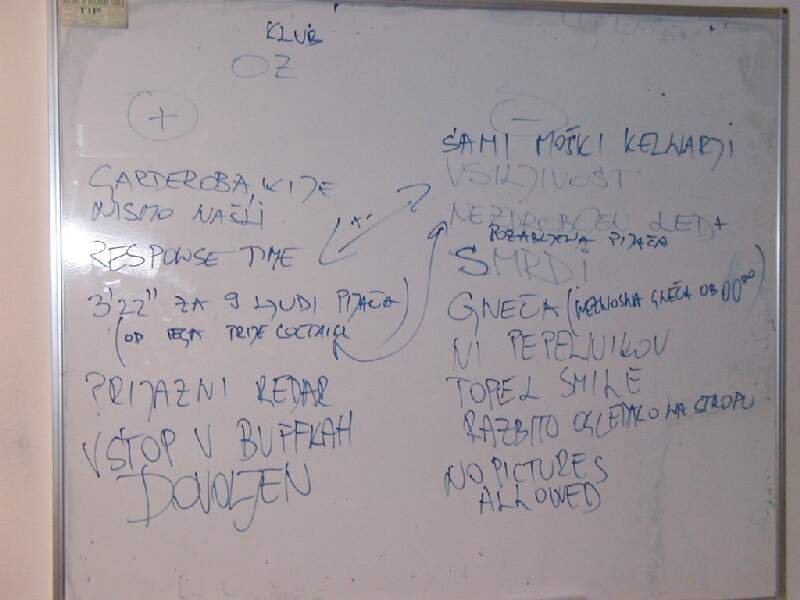 TIP
KLUB
OZ
+
GARDEROBA, KI JE
NISMO NAŠLI
RESPONSE TIME
3'22" ZA 9 LJUDI PIJAČA
(OD TEGA TRIJE COCTAILI)
PRIJAZNI REDAR
VSTOP V BUFFKAH
DOVOLJEN
-
SAMI MOŠKI KELNARJI
VSILJIVOST
NEZDROBLJEN LED +
POZABLJENA PIJAČA
SMRDI
GNEČA (NEZNOSNA GNEČA OB 00⁰⁰)
NI PEPELNIKOV
TOPEL SMILE
RAZBITO OGLEDALO NA STROPU
NO PICTURES
ALLOWED